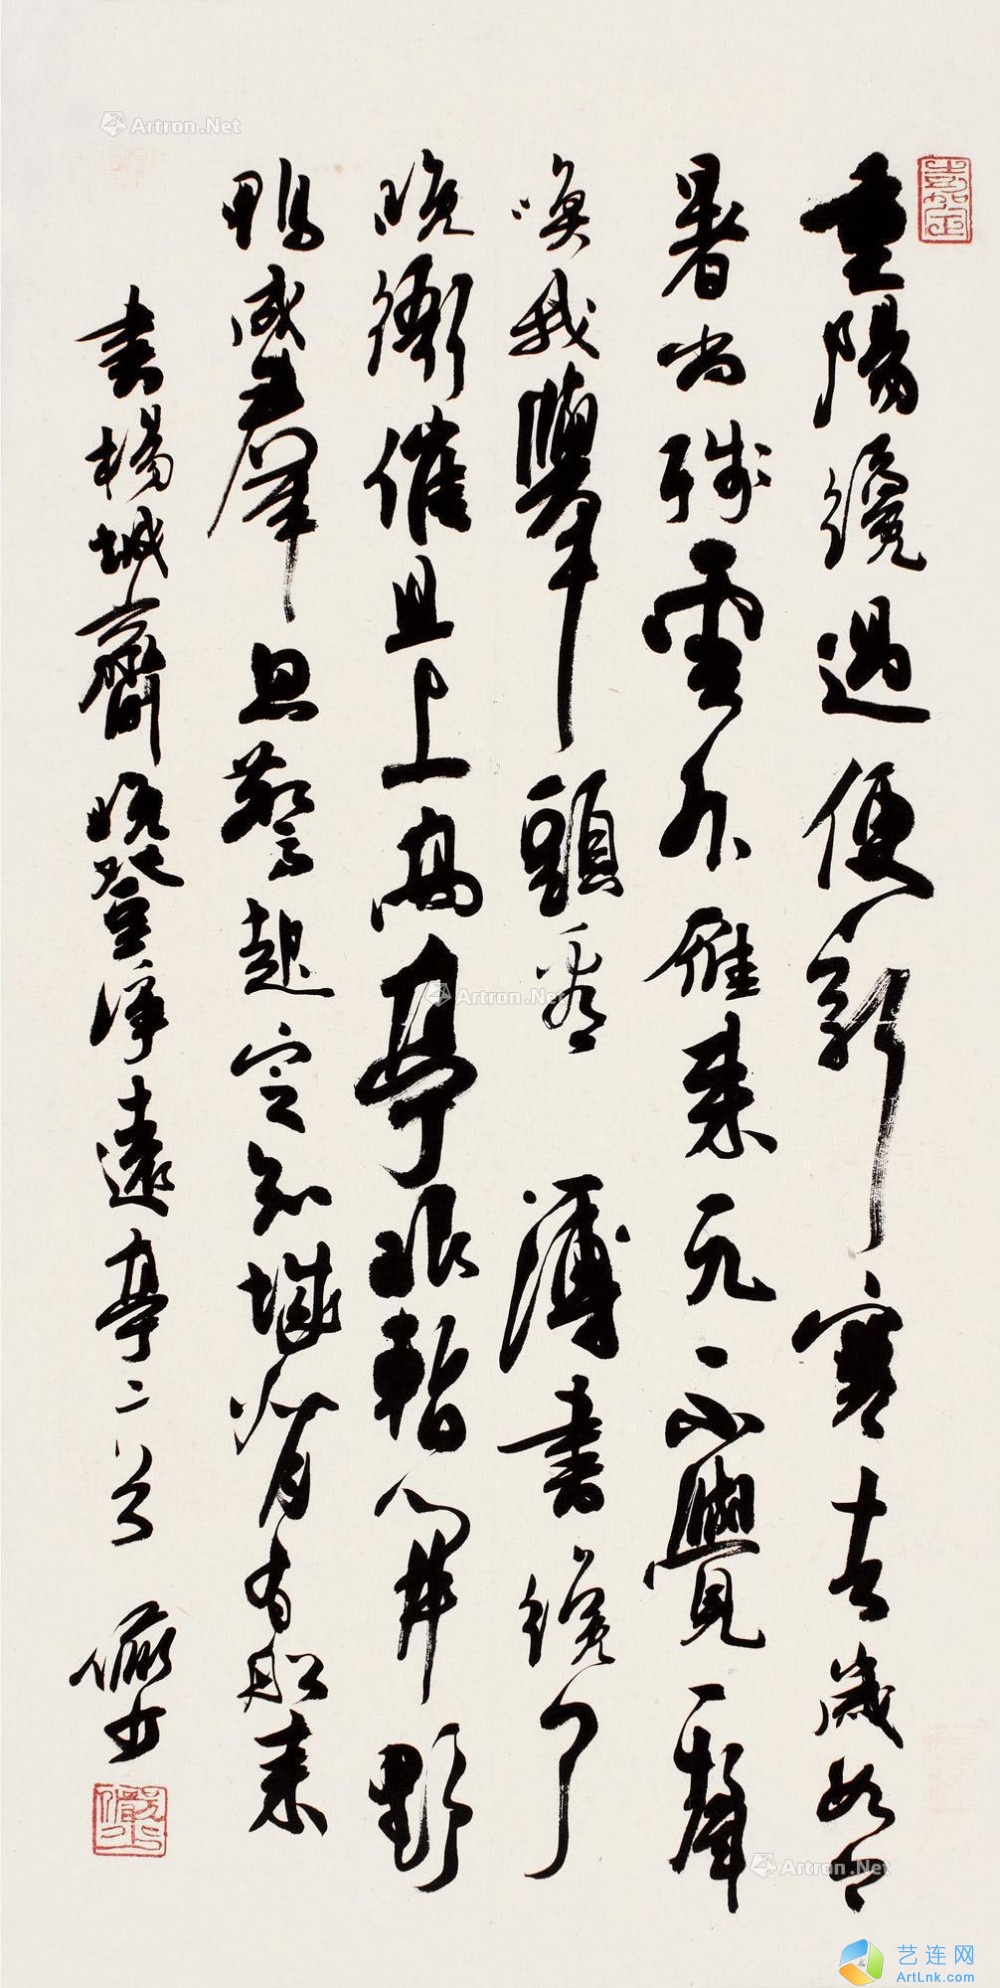 嘉定
重陽纔過便新寒去歲如今
暑尚殘雲外雁來元不覺一聲
喚我舉頭看 薄書纔了
晚衙催且上高亭眼暫開野
鴨成羣忽驚起定知城背有船來
書楊誠齋晚登淨遠亭二首 儼少
儼少
Artron.Net
Artron.Net
Artron.Net
艺连网
ArtLnk.com